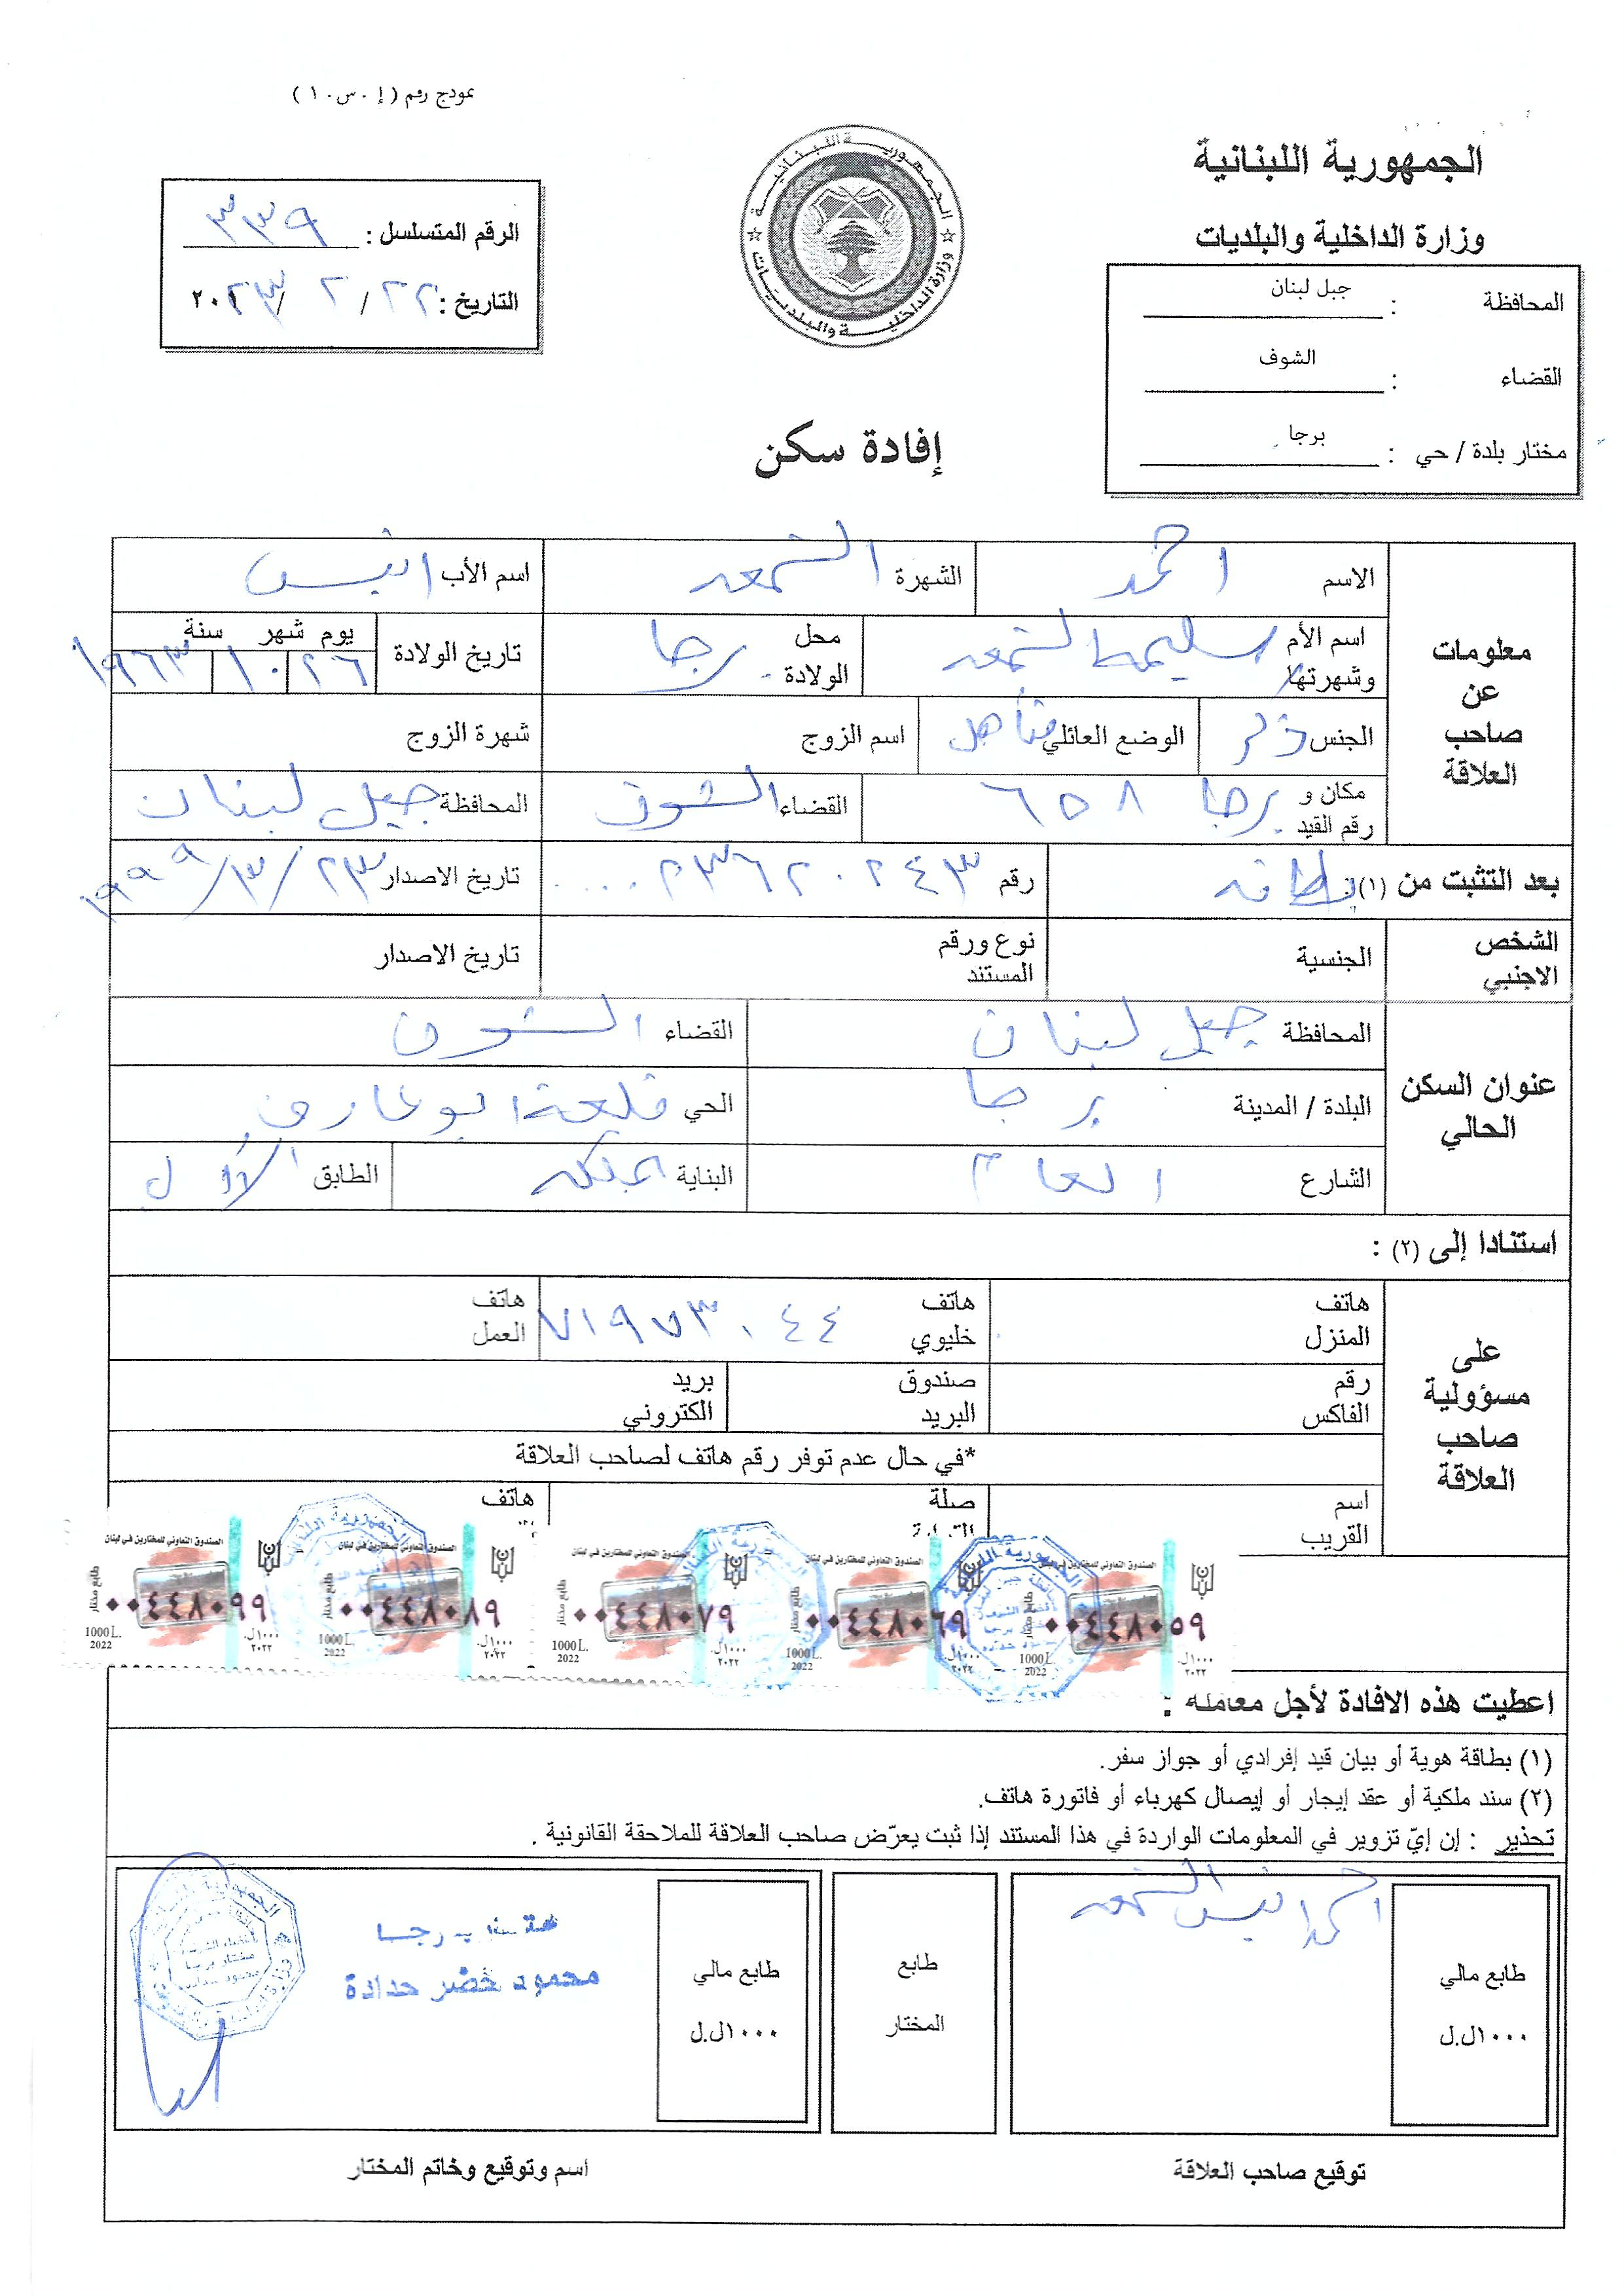 نموذج رقم (إ.س.١)
الجمهورية اللبنانية
وزارة الداخلية والبلديات
المحافظة : جبل لبنان
القضاء : الشوف
مختار بلدة / حي : برجا
الجمهورية اللبنانية
وزارة الداخلية والبلديات
الرقم المتسلسل : ٣٣٩
التاريخ : ٢٢ / ٢ / ٢٠٢٣
إفادة سكن
معلومات عن صاحب العلاقة
الاسم احمد الشهرة الشمعه اسم الأب انيس
اسم الأم وشهرتها الشمعه محل الولادة برجا تاريخ الولادة يوم شهر سنة ٢٦ ١٠ ١٩٦٣
الجنس ذكر الوضع العائلي متأهل اسم الزوج شهرة الزوج
مكان و رقم القيد برجا ٦٥٨ القضاء الشوف المحافظة جبل لبنان
بعد التثبت من (١): بطاقه رقم ٠٠٠٠٢٣٦٢٠٢٤٣ تاريخ الاصدار ٢٣/٣/١٩٩٩
الشخص الاجنبي الجنسية نوع ورقم المستند تاريخ الاصدار
عنوان السكن الحالي
المحافظة جبل لبنان القضاء الشوف
البلدة / المدينة برجا الحي قلعة ابو عارف
الشارع العام البناية ملكه الطابق الأول
استنادا إلى (٢) :
على مسؤولية صاحب العلاقة
هاتف المنزل هاتف خليوي ٧١٩٧٣٠٤٤ هاتف العمل
رقم الفاكس صندوق البريد بريد الكتروني
*في حال عدم توفر رقم هاتف لصاحب العلاقة
اسم القريب صلة هاتف
الصندوق التعاوني للمختارين في لبنان طابع مختار ٠٠٤٤٨٠٥٩ 1000 L. 2022 ١٠٠٠ل. ٢٠٢٢
الصندوق التعاوني للمختارين في لبنان طابع مختار ٠٠٤٤٨٠٦٩ 1000 L. 2022 ١٠٠٠ل. ٢٠٢٢
الصندوق التعاوني للمختارين في لبنان طابع مختار ٠٠٤٤٨٠٧٩ 1000 L. 2022 ١٠٠٠ل. ٢٠٢٢
الصندوق التعاوني للمختارين في لبنان طابع مختار ٠٠٤٤٨٠٨٩ 1000 L. 2022 ١٠٠٠ل. ٢٠٢٢
الصندوق التعاوني للمختارين في لبنان طابع مختار ٠٠٤٤٨٠٩٩ 1000 L. 2022 ١٠٠٠ل. ٢٠٢٢
اعطيت هذه الافادة لأجل معاملة :
(١) بطاقة هوية أو بيان قيد إفرادي أو جواز سفر.
(٢) سند ملكية أو عقد إيجار أو إيصال كهرباء أو فاتورة هاتف.
تحذير : إن إيّ تزوير في المعلومات الواردة في هذا المستند إذا ثبت يعرّض صاحب العلاقة للملاحقة القانونية .
احمد انيس الشمعه
طابع مالي
١٠٠٠ل.ل
طابع
المختار
طابع مالي
١٠٠٠ل.ل
برجا
محمود خضر حدادة
توقيع صاحب العلاقة
اسم وتوقيع وخاتم المختار